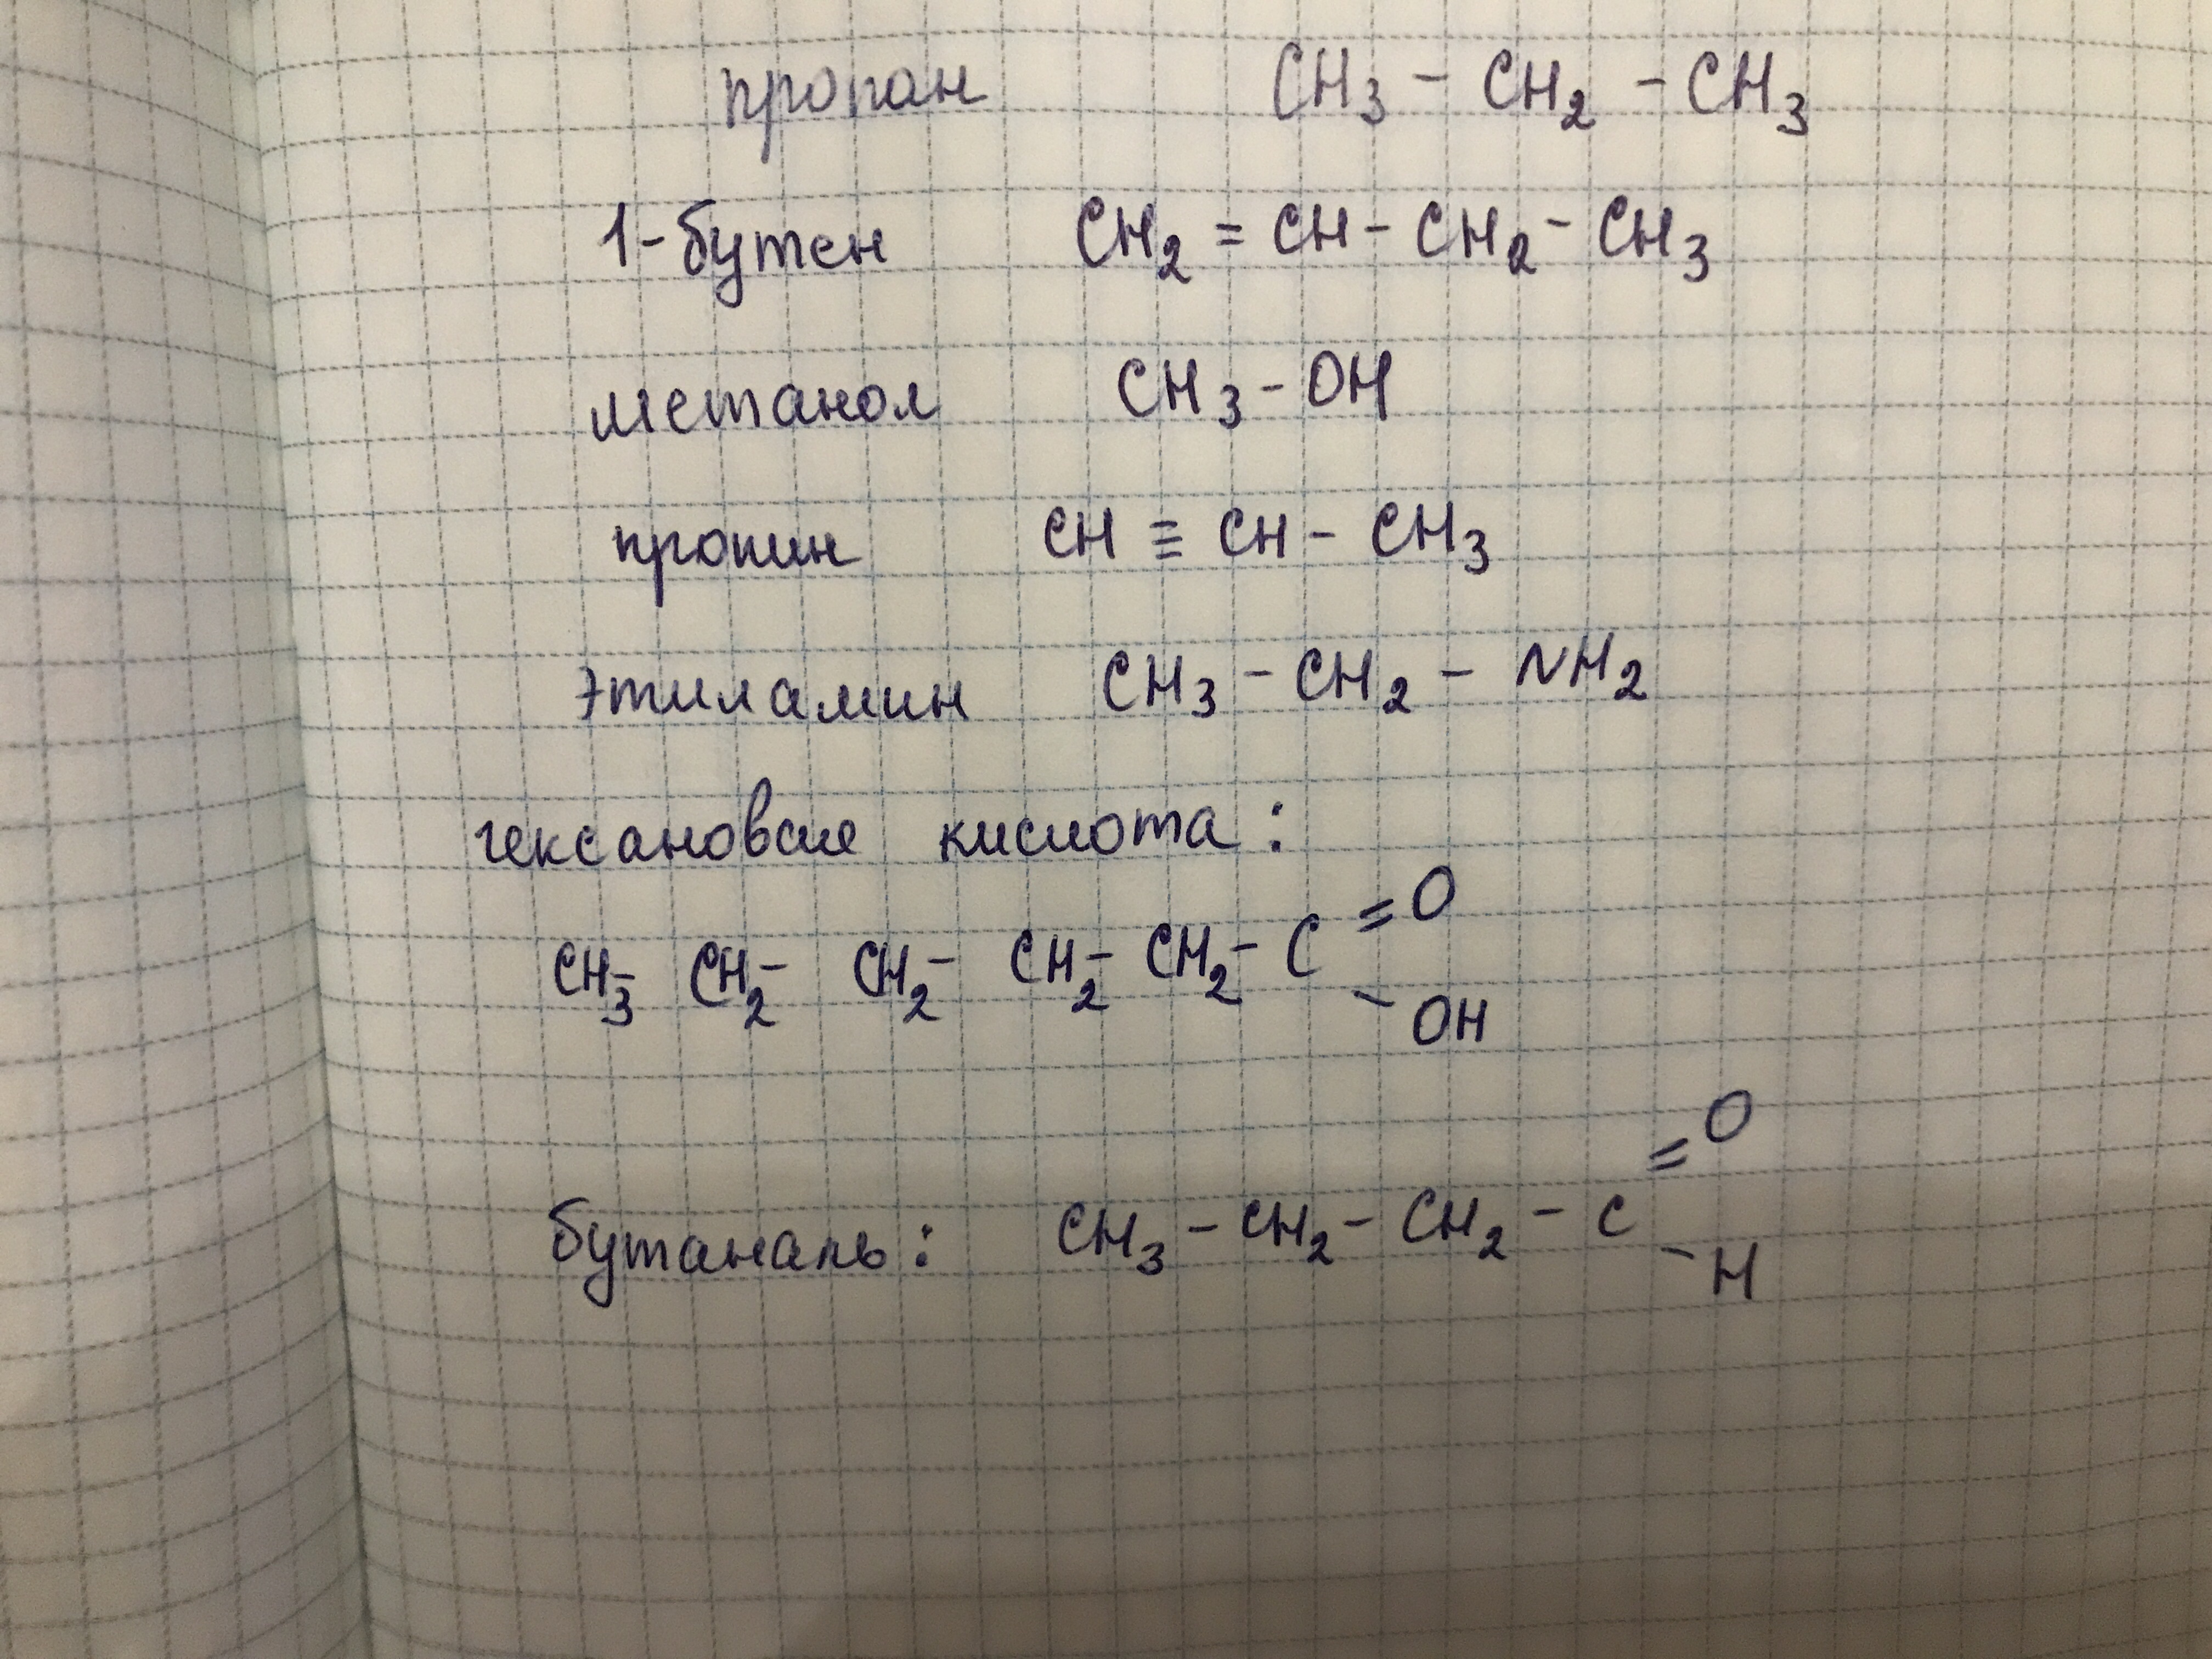 пропан CH₃ – CH₂ – CH₃
1-бутен CH₂ = CH – CH₂ – CH₃
метанол CH₃ – OH
пропин CH ≡ CH – CH₃
этиламин CH₃ – CH₂ – NH₂
гексановая кислота:
=O
CH₃– CH₂– CH₂– CH₂– CH₂– C
–OH
=O
бутаналь: CH₃ – CH₂ – CH₂ – C
–H